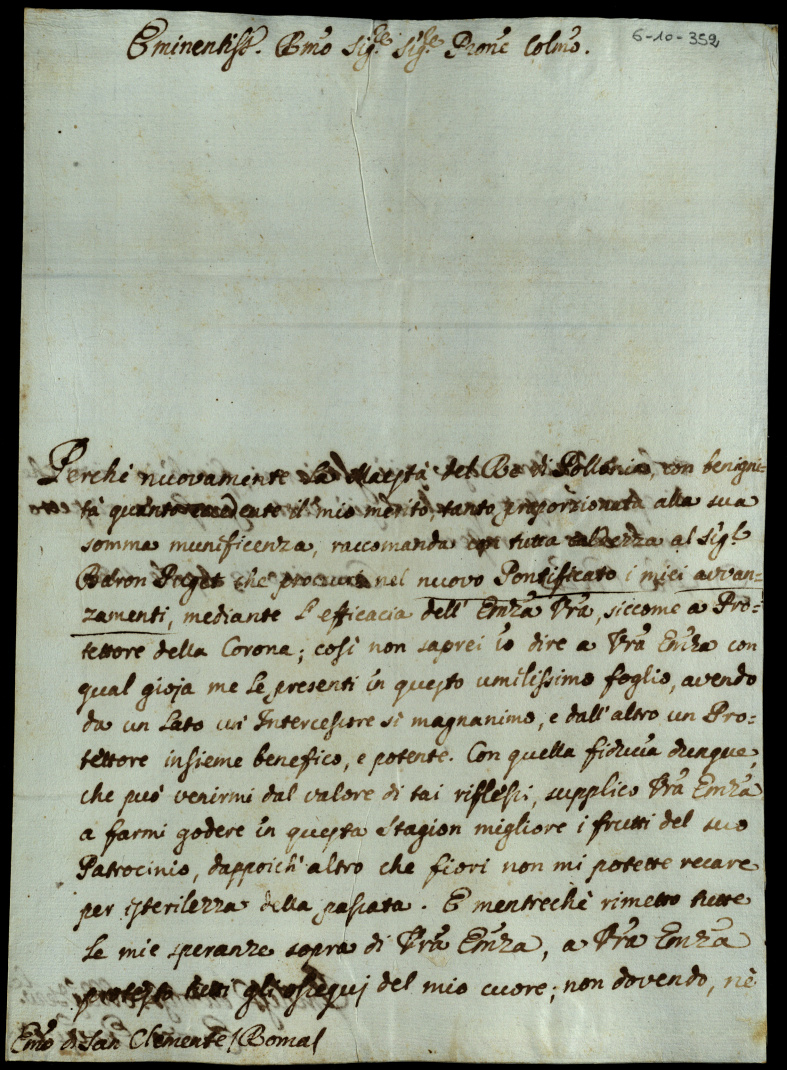 Eminentiss.º Rmo Sig.re Sig.re Prone Colmo.
6-10-352
Perchè nuovamente La Maestà del Re di Pollonia, con benigni=
tà quanto eccedente il mio merito, tanto proporzionata alla sua
somma munificenza, raccomanda con tutta caldezza al Sig.r
Padron che procuri nel nuovo Pontificato i miei avvan=
zamenti, mediante l'efficacia dell' Emza Vra, siccome a Pro=
tettore della Corona; così non saprei io dire a Vra Emza con
qual gioja me le presenti in questo umilissimo foglio, avendo
da un lato un' Intercessore sì magnanimo, e dall'altro un Pro=
tettore insieme benefico, e potente. Con quella fiducia dunque,
che può venirmi dal valore di tai riflessi, supplico Vra Emza
a farmi godere in questa Stagion migliore i frutti del suo
Patrocinio, dappoich' altro che fiori non mi potette recare
per isterilezza della passata. E mentrechè rimetto tutte
le mie speranze sopra di Vra Emza, a Vra Emza
protesto tutti gli ossequj del mio cuore; non dovendo, nè
Emo di San Clemente / Roma /